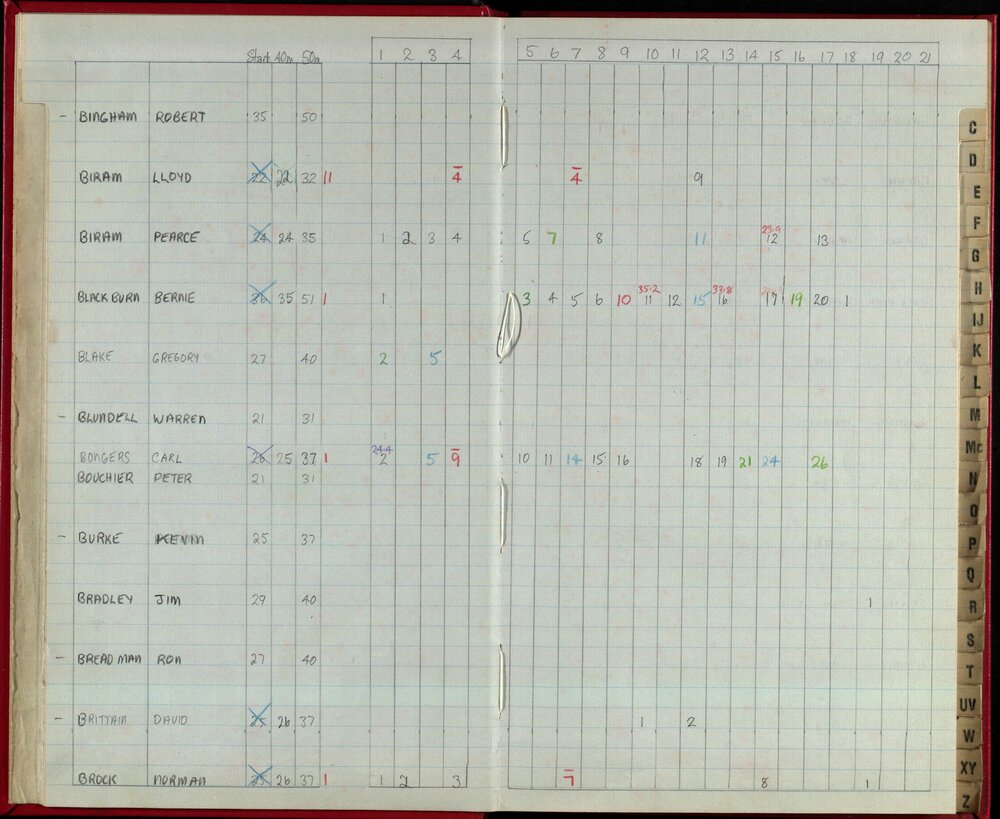 Start 40m 50m 1 2 3 4 5 6 7 8 9 10 11 12 13 14 15 16 17 18 19 20 21
- BINGHAM ROBERT 35 50
BIRAM LLOYD 22 22 32 11 4 4 9
BIRAM PEARCE 24 24 35 1 2 3 4 5 7 8 11 23.9 12 13
BLACKBURN BERNIE 36 35 51 1 1 3 4 5 6 10 35.2 11 12 15 33.8 16 17 19 20 1
BLAKE GREGORY 27 40 2 5
- BLUNDELL WARREN 21 31
BONGERS CARL 26 25 37 1 24.4 2 5 9 10 11 14 15 16 18 19 21 24 26
BOUCHIER PETER 21 31
- BURKE KEVIN 25 37
BRADLEY JIM 29 40 1
- BREADMAN RON 27 40
- BRITTAIN DAVID 25 26 37 1 2
BROCK NORMAN 25 26 37 1 1 2 3 7 8 1
C
D
E
F
G
H
IJ
K
L
M
Mc
N
O
P
Q
R
S
T
UV
W
XY
Z